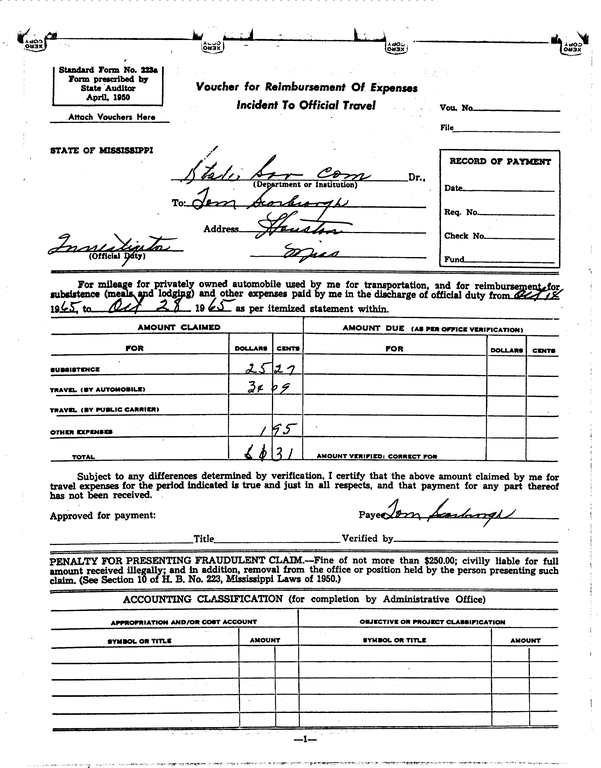 XERO COPY XERO COPY XERO COPY XERO COPY
Standard Form No. 223a
Form prescribed by
State Auditor
April, 1950
Attach Vouchers Here
Voucher for Reimbursement Of Expenses
Incident To Official Travel
Vou. No.
File
STATE OF MISSISSIPPI
State Sov Com Dr.,
(Department or Institution)
To: Tom Scarbrough
Address Houston
Miss
Investigator
(Official Duty)
RECORD OF PAYMENT
Date
Req. No.
Check No.
Fund
For mileage for privately owned automobile used by me for transportation, and for reimbursement for
subsistence (meals and lodging) and other expenses paid by me in the discharge of official duty from Oct 18
1965, to Oct 28 1965 as per itemized statement within.
AMOUNT CLAIMED AMOUNT DUE (AS PER OFFICE VERIFICATION)
FOR DOLLARS CENTS FOR DOLLARS CENTS
SUBSISTENCE 25 27
TRAVEL (BY AUTOMOBILE) 34 09
TRAVEL (BY PUBLIC CARRIER)
OTHER EXPENSES 1 95
TOTAL 31 AMOUNT VERIFIED: CORRECT FOR
Subject to any differences determined by verification, I certify that the above amount claimed by me for
travel expenses for the period indicated is true and just in all respects, and that payment for any part thereof
has not been received.
Approved for payment: Payee Tom Scarbrough
Title Verified by
PENALTY FOR PRESENTING FRAUDULENT CLAIM.—Fine of not more than $250.00; civilly liable for full
amount received illegally; and in addition, removal from the office or position held by the person presenting such
claim. (See Section 10 of H. B. No. 223, Mississippi Laws of 1950.)
ACCOUNTING CLASSIFICATION (for completion by Administrative Office)
APPROPRIATION AND/OR COST ACCOUNT OBJECTIVE OR PROJECT CLASSIFICATION
SYMBOL OR TITLE AMOUNT SYMBOL OR TITLE AMOUNT
—1—